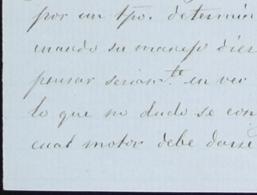 por un tpo. determin
cuando su manejo dier
pensar seriam.te en ver
lo que no dudo se con
cual motor debe darse